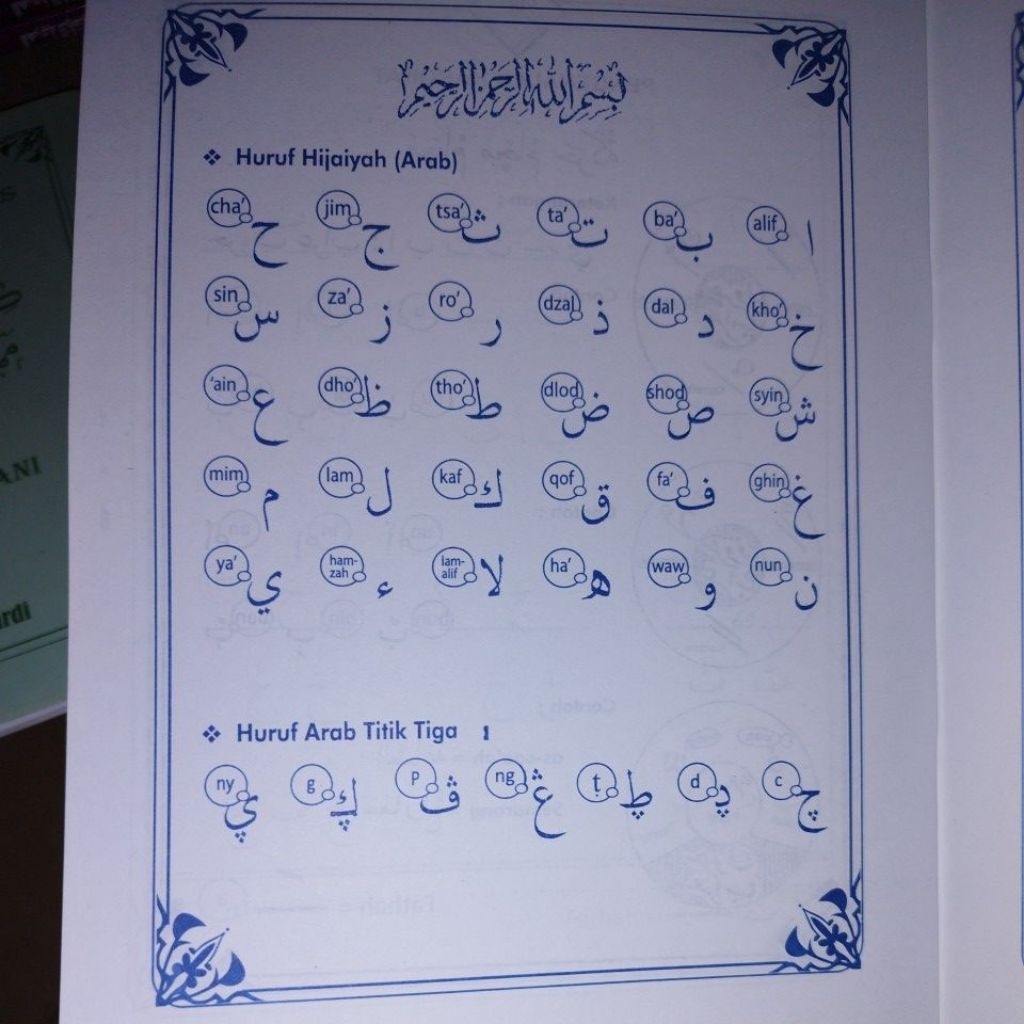 بسم الله الرحمن الرحيم
❖ Huruf Hijaiyah (Arab)
alif ا ba' ب ta' ت tsa' ث jim ج cha' ح
kho' خ dal د dzal ذ ro' ر za' ز sin س
syin ش shod ص dlod ض tho' ط dho' ظ 'ain ع
ghin غ fa' ف qof ق kaf ك lam ل mim م
nun ن waw و ha' ه lam-alif لا ham-zah ء ya' ي
❖ Huruf Arab Titik Tiga
c چ d ڎ ṭ ng ڠ p ڤ g ny
ANI
rdi